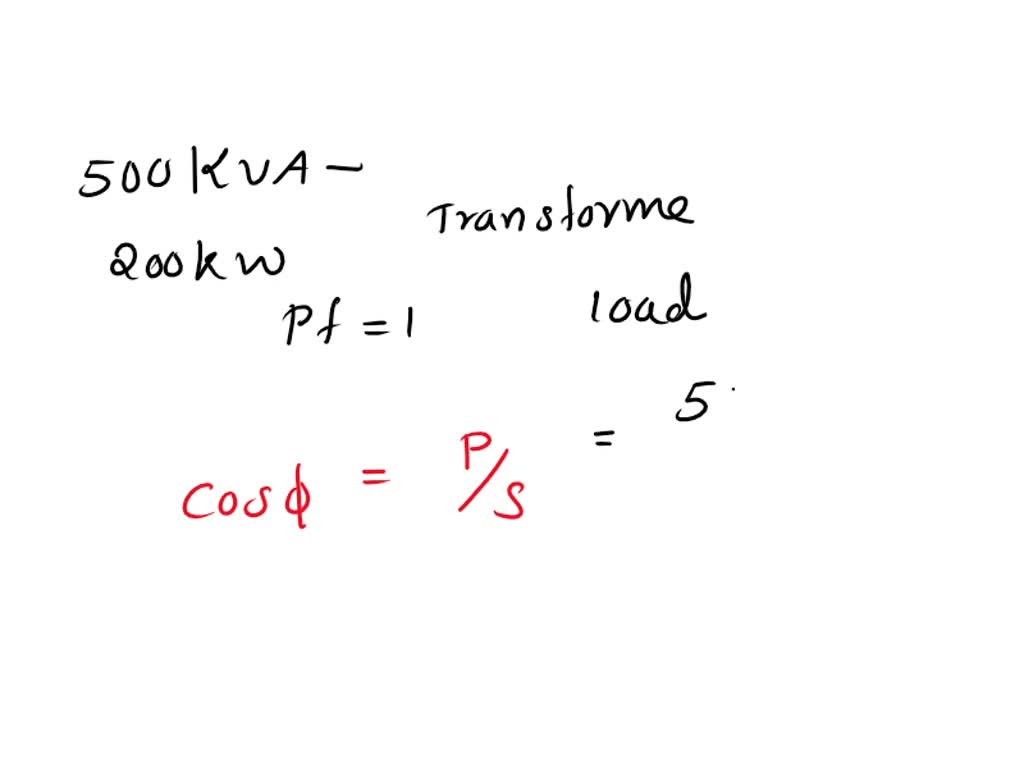 500 KVA –
Transforme
200kw
Pf = 1
load
5
cosϕ = P/S =